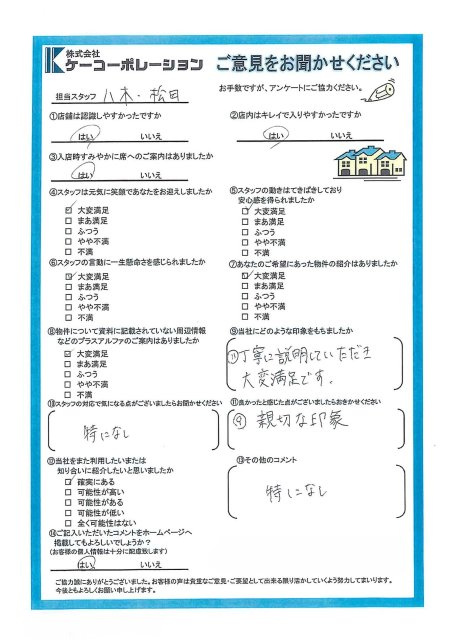 株式会社
ケーコーポレーション ご意見をお聞かせください
担当スタッフ 八木・松田
お手数ですが、アンケートにご協力ください。
①店舗は認識しやすかったですか
はい いいえ
②店内はキレイで入りやすかったですか
はい いいえ
③入店時すみやかに席へのご案内はありましたか
はい いいえ
④スタッフは元気に笑顔であなたをお迎えしましたか
大変満足
まあ満足
ふつう
やや不満
不満
⑤スタッフの動きはてきぱきしており
安心感を得られましたか
大変満足
まあ満足
ふつう
やや不満
不満
⑥スタッフの言動に一生懸命さを感じられましたか
大変満足
まあ満足
ふつう
やや不満
不満
⑦あなたのご希望にあった物件の紹介はありましたか
大変満足
まあ満足
ふつう
やや不満
不満
⑧物件について資料に記載されていない周辺情報
などのプラスアルファのご案内はありましたか
大変満足
まあ満足
ふつう
やや不満
不満
⑨当社にどのような印象をもちましたか
⑪丁寧に説明していただき
大変満足です。
⑩スタッフの対応で気になる点がございましたらお聞かせください
特になし
⑪良かったと感じた点がございましたらおきかせください
⑨ 親切な印象
⑫当社をまた利用したいまたは
知り合いに紹介したいと思いましたか
確実にある
可能性が高い
可能性がある
可能性が低い
全く可能性はない
⑬その他のコメント
特になし
⑭ご記入いただいたコメントをホームページへ
掲載してもよろしいでしょうか？
(お客様の個人情報は十分に配慮致します)
はい いいえ
ご協力誠にありがとうございました。お客様の声は貴重なご意見・ご要望として出来る限り活かしていくよう努力してまいります。
今後ともよろしくお願い申し上げます。